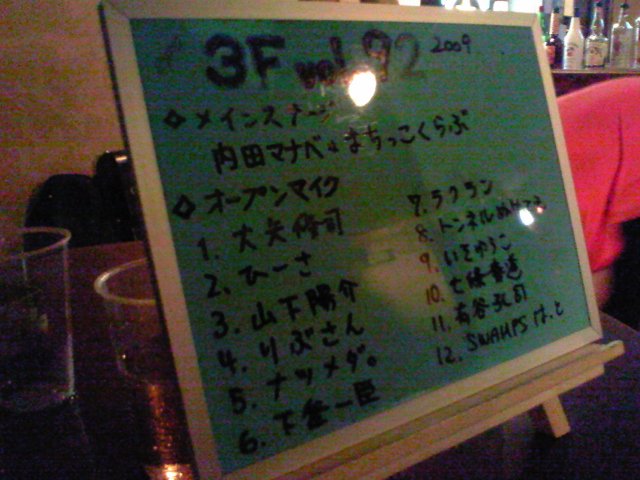 3F vol.92 2009
◇メインステージ
内田マナベ&まちっこくらぶ
◇オープンマイク
1. 大矢修司
2. ひーさ
3. 山下陽介
4. りぶさん
5. ナツメダ。
6. 下釜一臣
7. ラクラン
8. トンネル
9. いそやうこ
10.
11.
12. SWAMPS